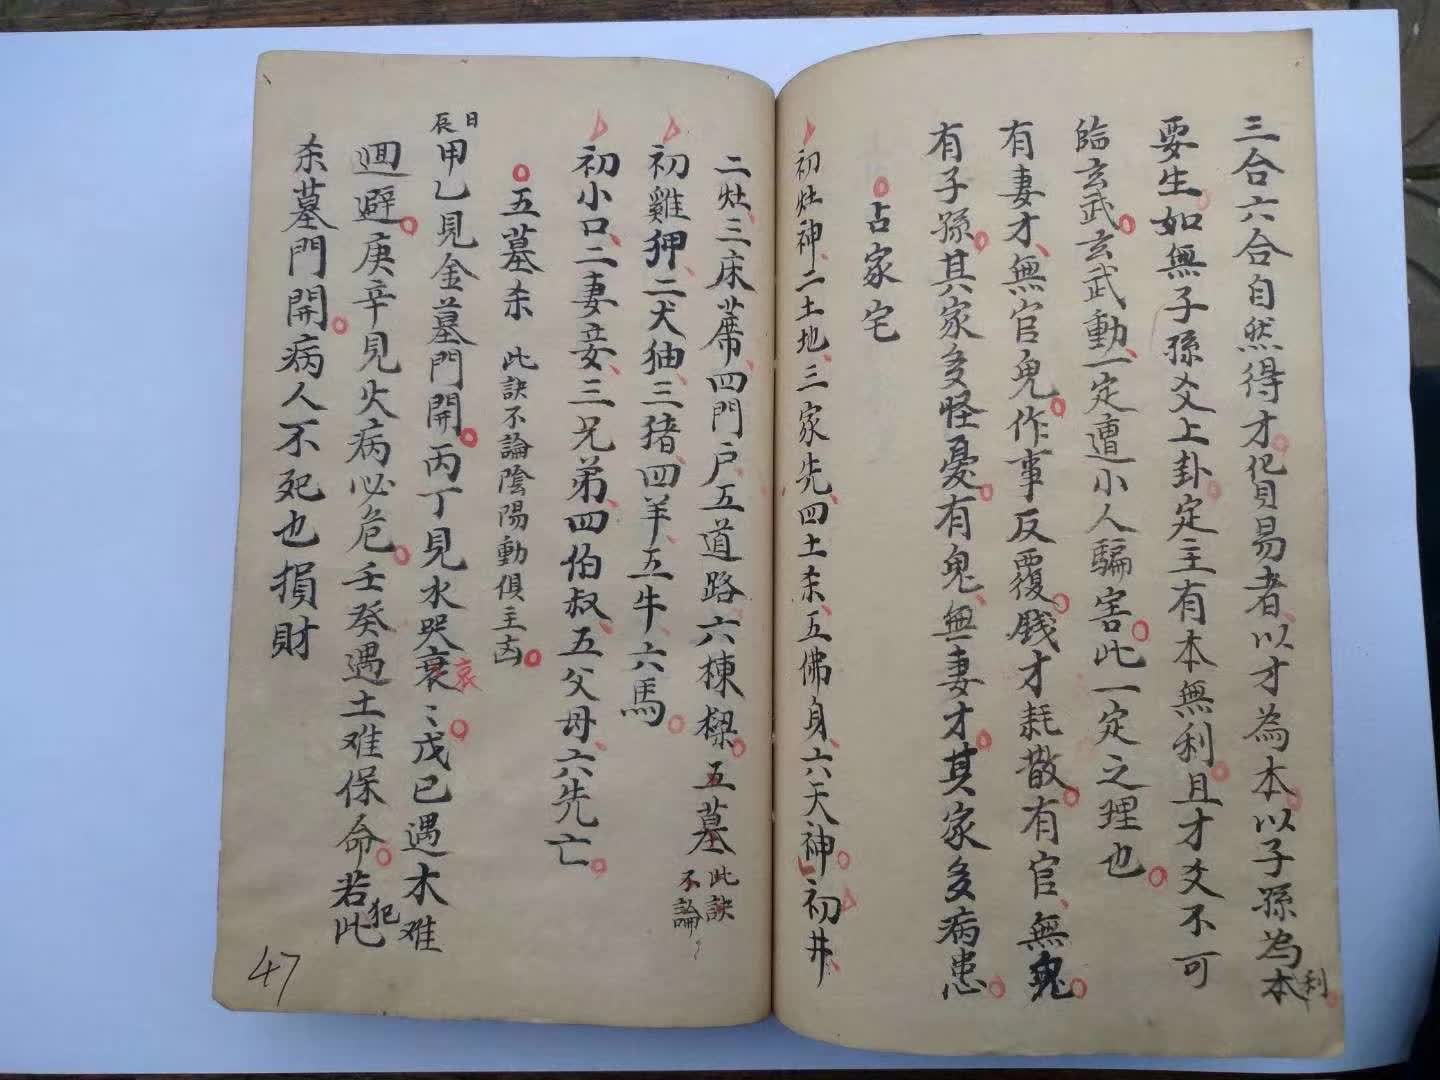 三合六合自然得才凡貿易者以才為本以子孫為本利
要生如無子孫爻上卦定主有本無利且才爻不可
臨玄武玄武動一定遭小人騙害此一定之理也
有妻才無官鬼作事反覆錢才耗散有官無鬼
有子孫其家多怪憂有鬼無妻才其家多病患
占家宅
初灶神二土地三家先四土杀五佛身六天神初井
二灶三床蓆四門户五道路六棟樑五墓此訣不論
初雞狎二犬狖三猪四羊五牛六馬
初小口二妻妾三兄弟四伯叔五父母六先亡
五墓杀 此訣不論陰陽動俱主凶
日辰甲乙見金墓門開丙丁見水哭衰哀〻戊己遇木难
迴避庚辛見火病必危壬癸遇土难保命若犯此
杀墓門開病人不死也損財
47